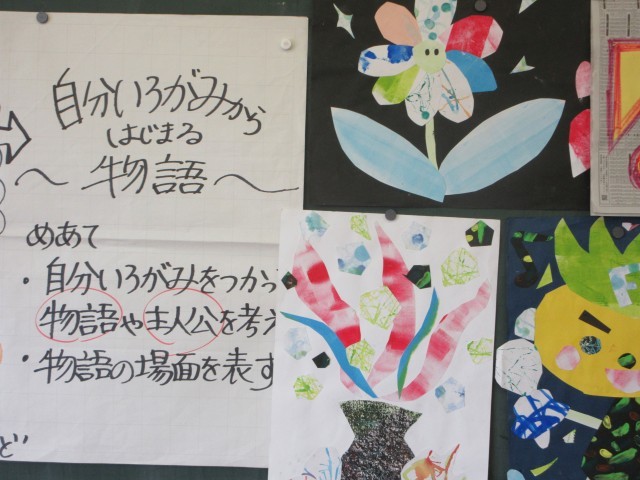 自分いろがみから
はじまる
～物語～
めあて
・自分いろがみをつかっ
物語や主人公を考え
・物語の場面を表す
ど